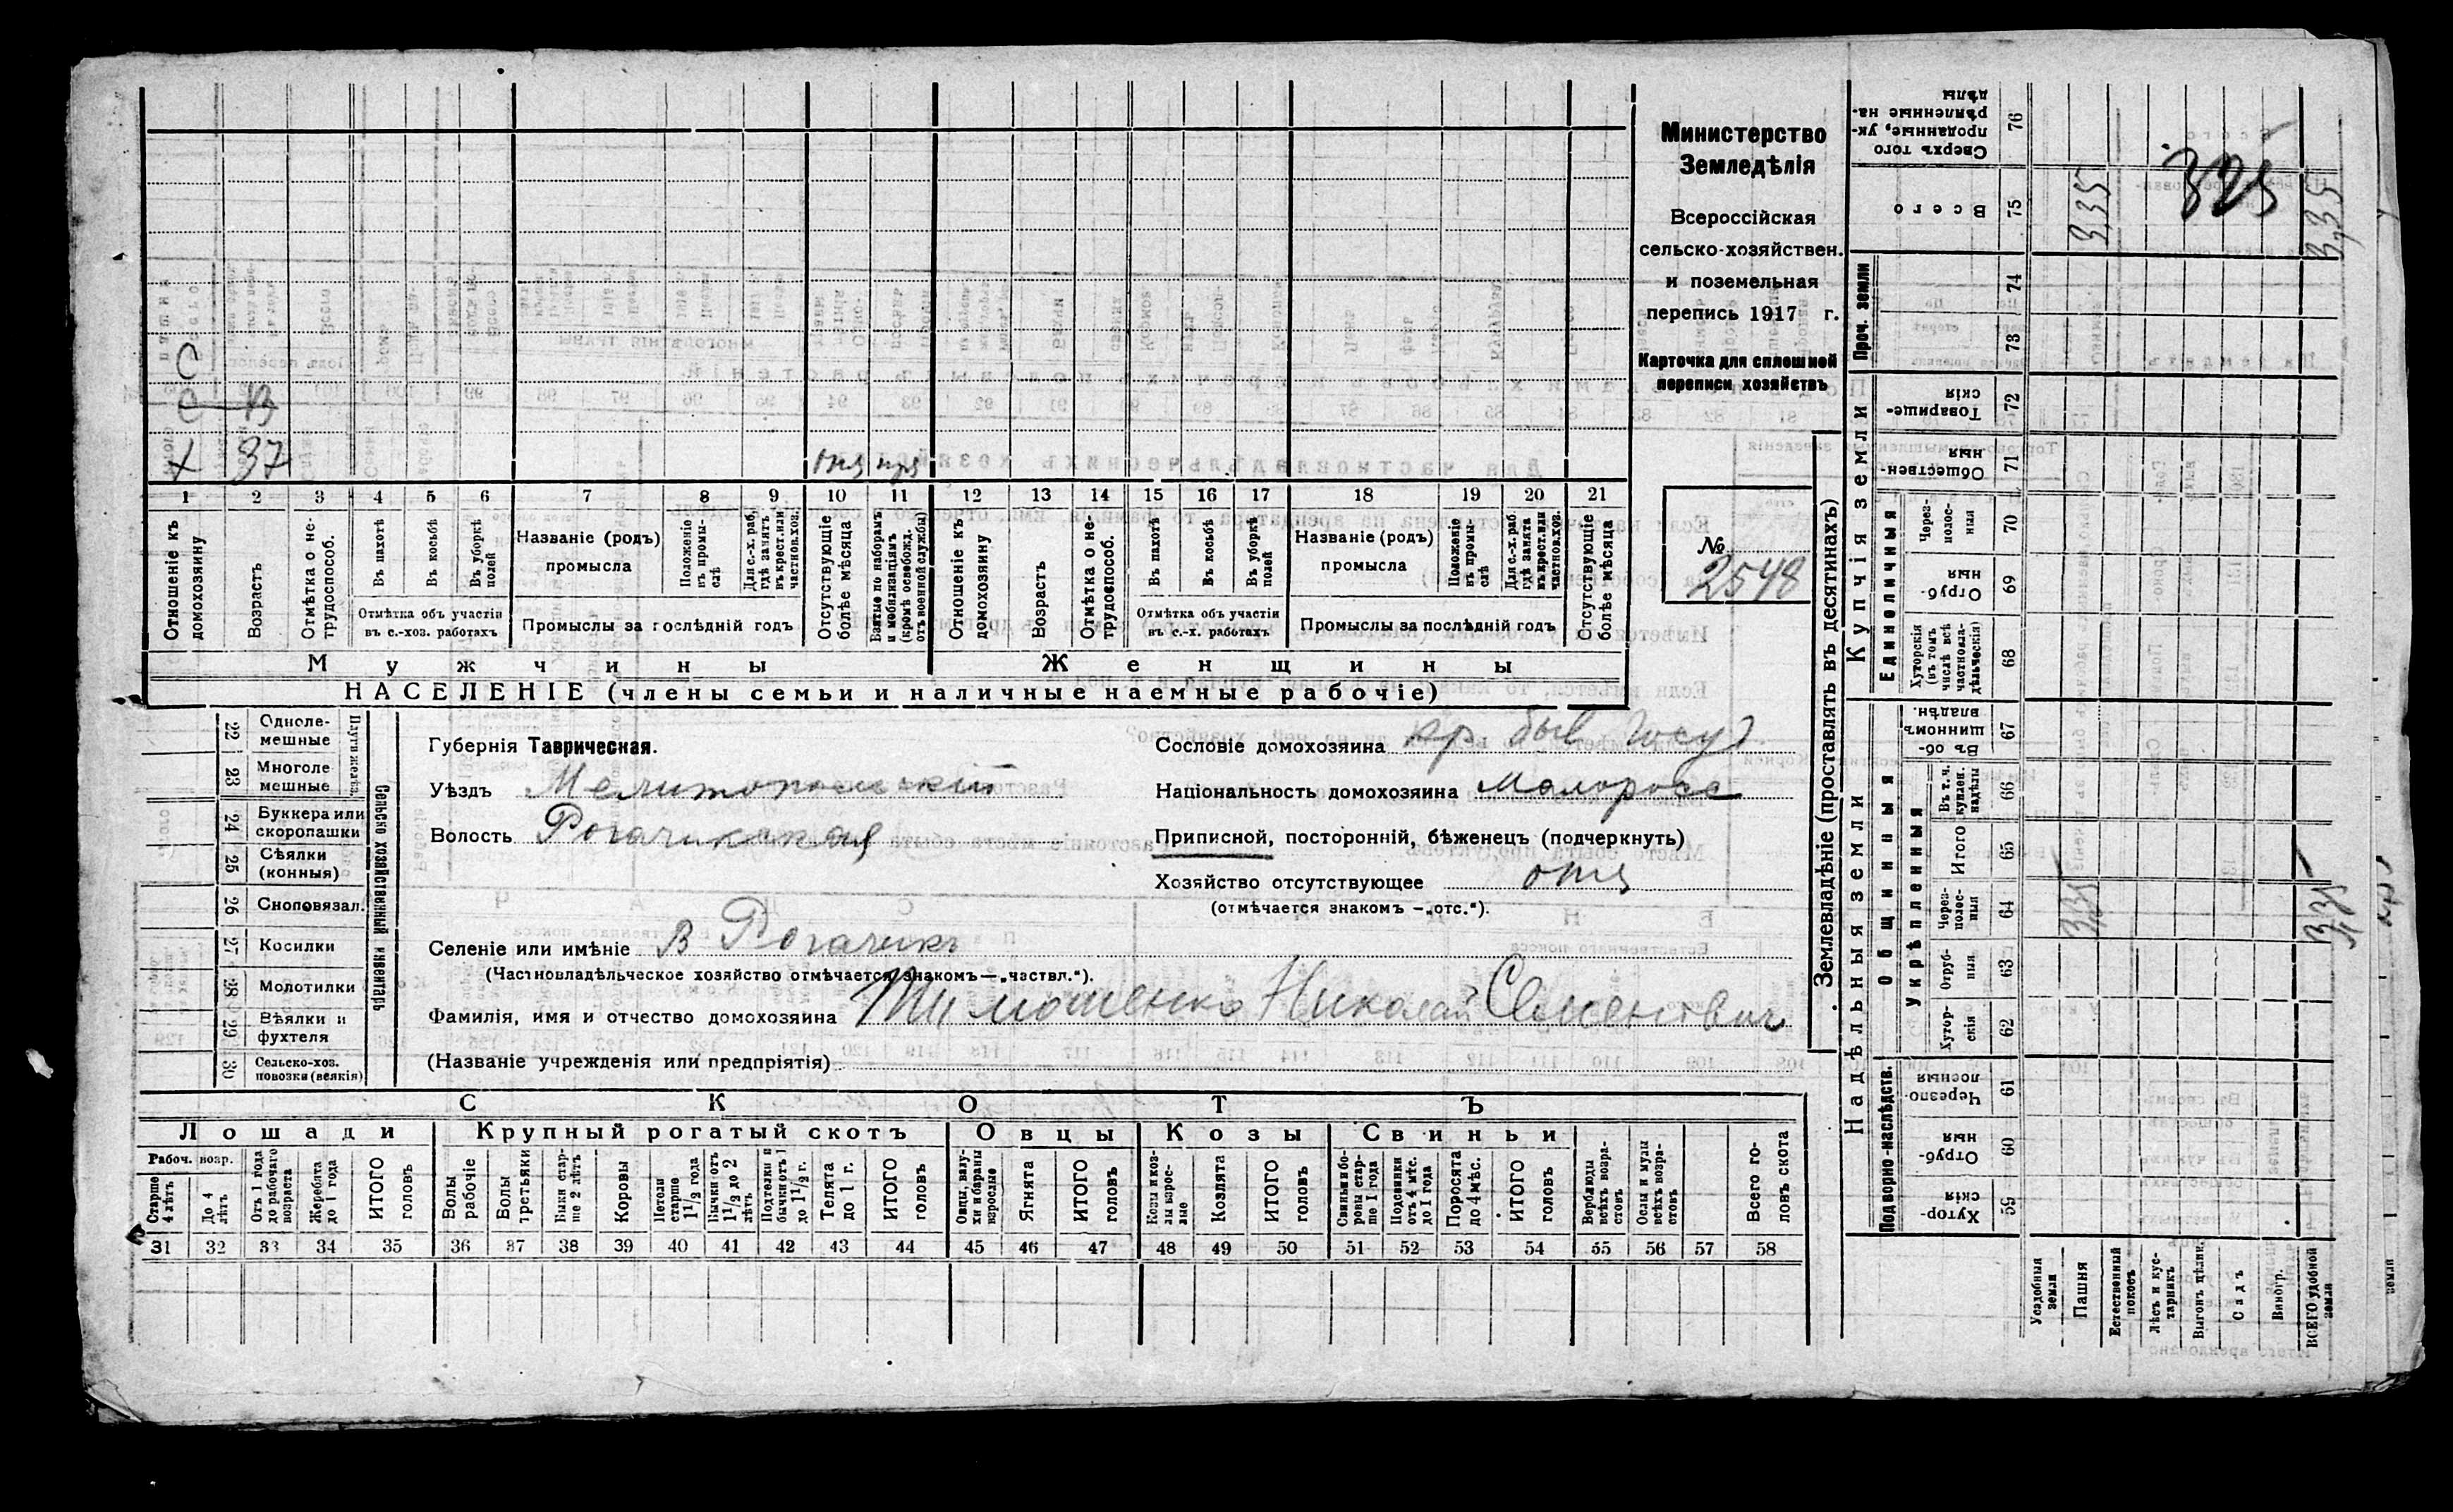 Министерство
Земледѣлія
Всероссійская
сельско-хозяйствен.
и поземельная
перепись 1917 г.
Карточка для сплошной
переписи хозяйствъ
№
2548
С
С 13
х 37
1 2 3 4 5 6 7 8 9 10 11 12 13 14 15 16 17 18 19 20 21
Отношеніе къ домохозяину
Возрастъ
Отмѣтка о нетрудоспособ.
Въ пахотѣ
Въ косьбѣ
Въ уборкѣ полей
Отмѣтка объ участіи въ с.-хоз. работахъ
Названіе (родъ) промысла
Положеніе въ промыслѣ
Для с.-х. раб. гдѣ занятъ въ крест. или частнов. хоз.
Промыслы за послѣдній годъ
Отсутствующіе болѣе мѣсяца
Взятые по наборамъ и мобилизаціямъ (кромѣ освобожд. отъ военной службы)
Отношеніе къ домохозяину
Возрастъ
Отмѣтка о нетрудоспособ.
Въ пахотѣ
Въ косьбѣ
Въ уборкѣ полей
Отмѣтка объ участіи въ с.-х. работахъ
Названіе (родъ) промысла
Положеніе въ промыслѣ
Для с.-х. раб. гдѣ занята въ крест. или частнов. хоз.
Промыслы за послѣдній годъ
Отсутствующіе болѣе мѣсяца
Мужчины Женщины
НАСЕЛЕНІЕ (члены семьи и наличные наемные рабочіе)
Сельско хозяйственный инвентарь
Плуги желѣзн.
22 Однолемешные
23 Многолемешные
24 Буккера или скоропашки
25 Сѣялки (конныя)
26 Сноповязал.
27 Косилки
28 Молотилки
29 Вѣялки и фухтеля
30 Сельско-хоз. повозки (всякія)
Губернія Таврическая.
Уѣздъ Мелитопольскій
Волость Рогачикская
Селеніе или имѣніе В Рогачикъ
(Частновладѣльческое хозяйство отмѣчается знакомъ—„частвл.“).
Фамилія, имя и отчество домохозяина Тимошенко Николай Семенович
(Названіе учрежденія или предпріятія)
Сословіе домохозяина кр быв Госуд
Національность домохозяина Малоросс
Приписной, посторонній, бѣженецъ (подчеркнуть)
Хозяйство отсутствующее отс
(отмѣчается знакомъ —„отс.“).
СКОТЪ
Лошади Крупный рогатый скотъ Овцы Козы Свиньи
Рабоч. возр.
Старше 4 лѣтъ
До 4 лѣтъ
Отъ 1 года до рабочаго возраста
Жеребята до 1 года
ИТОГО головъ
Волы рабочіе
Волы третьяки
Быки старше 2 лѣтъ
Коровы
Нетели старше 1 1/2 года
Бычки отъ 1 1/2 до 2 лѣтъ
Подтелки и бычки отъ 1 до 1 1/2 г.
Телята до 1 г.
ИТОГО головъ
Овцы, валухи и бараны взрослые
Ягнята
ИТОГО головъ
Козы и козлы взрослые
Козлята
ИТОГО головъ
Свиньи и боровы старше 1 года
Подсвинки отъ 4 мѣс. до 1 года
Поросята до 4 мѣс.
ИТОГО головъ
Верблюды всѣхъ возрастовъ
Ослы и мулы всѣхъ возрастовъ
Всего головъ скота
31 32 33 34 35 36 37 38 39 40 41 42 43 44 45 46 47 48 49 50 51 52 53 54 55 56 57 58
Землевладѣніе (проставлять въ десятинахъ)
Купчія земли
Надѣльныя земли
Проч. земли
Единоличныя
Общинныя
Укрѣпленныя
Подворно-наслѣдств.
Сверхъ того проданные, укрѣпленные надѣлы 76
Всего 75
74
73
Товарищескія 72
Общественныя 71
Черезполосныя 70
Отрубныя 69
Хуторскія (въ томъ числѣ всѣ частновладѣльческія) 68
Въ общинномъ владѣн. 67
Въ т. ч. куплен. надѣлы 66
Итого 65
Черезполосныя 64
Отрубныя 63
Хуторскія 62
Черезполосныя 61
Отрубныя 60
Хуторскія 59
Усадебныя земли
Пашня
Естественный покосъ
Лѣсъ и кустарникъ
Выгонъ цѣлин.
Садъ
Виногр.
ВСЕГО удобной земли
3,35
325
3,35
335
335